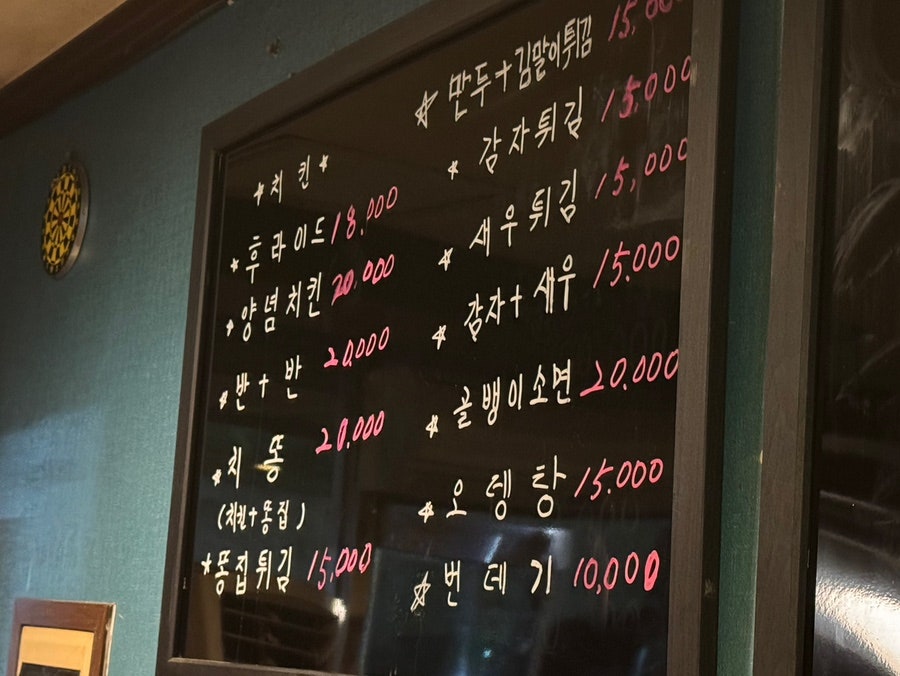 *치킨*
*후라이드 18.000
*양념치킨 20.000
*반+반 20,000
*치똥 20.000
(치킨+똥집)
*똥집튀김 15,000
☆만두+김말이튀김 15,000
*감자튀김 15,000
*새우튀김 15,000
*감자+새우 15.000
*골뱅이소면 20.000
*오뎅탕 15.000
☆번데기 10,000